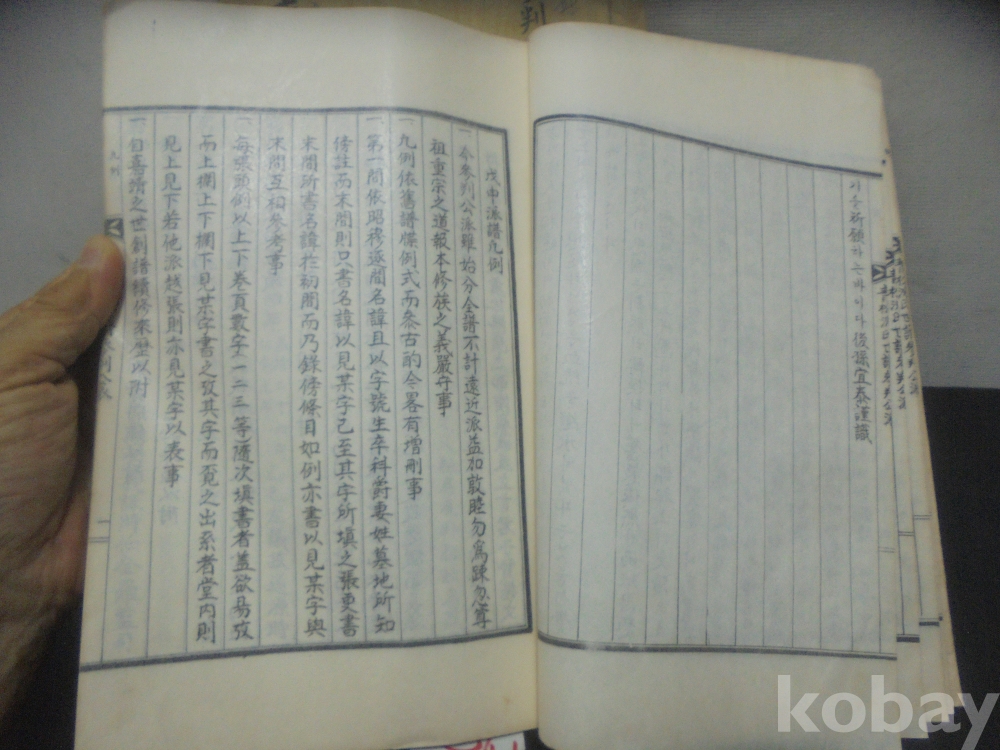 시를祈願하는바이다 後孫宜泰謹識
戊申派譜凡例
一 今參判公派雖始分全譜不計遠近派益加敦睦勿爲踈勿尊
祖重宗之道報本修族之義嚴守事
一 凡例依舊譜牒例式而叅古酌今畧有增刪事
一 第一間依昭穆逐間名諱且以字號生卒科爵妻姓墓地所知
傍註而末間則只書名諱以見某字已至其字所塡之張更書
末間所書名諱於初間而乃錄傍條目如例亦書以見某字與
末間互相參考事
一 每張頭例以上下卷頁數字一二三等隨次塡書者盖欲易攷
而上欄上下欄下見某字書之攷其字而覓之出系者堂內則
見上見下若他派越張則亦見某字以表事
一 自嘉靖之世創譜續修來歷以附
凡例
kobay